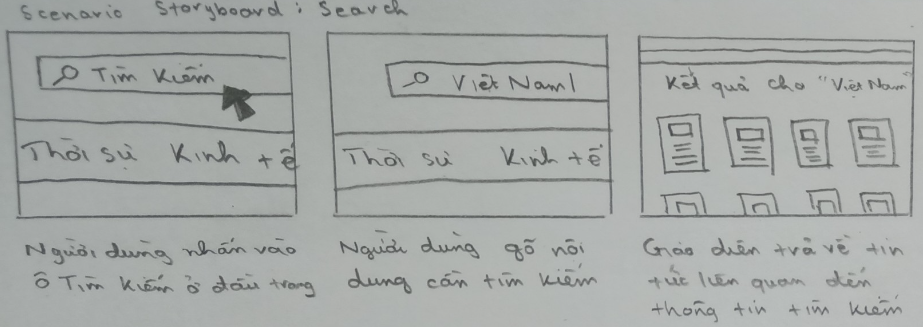 Scenario Storyboard : Search
Tìm kiếm
Thời sự Kinh tế
Người dùng nhấn vào
ô Tìm kiếm ở đầu trang
Việt Nam|
Thời sự Kinh tế
Người dùng gõ nội
dung cần tìm kiếm
Kết quả cho "Việt Nam"
Giao diện trả về tin
tức liên quan đến
thông tin tìm kiếm